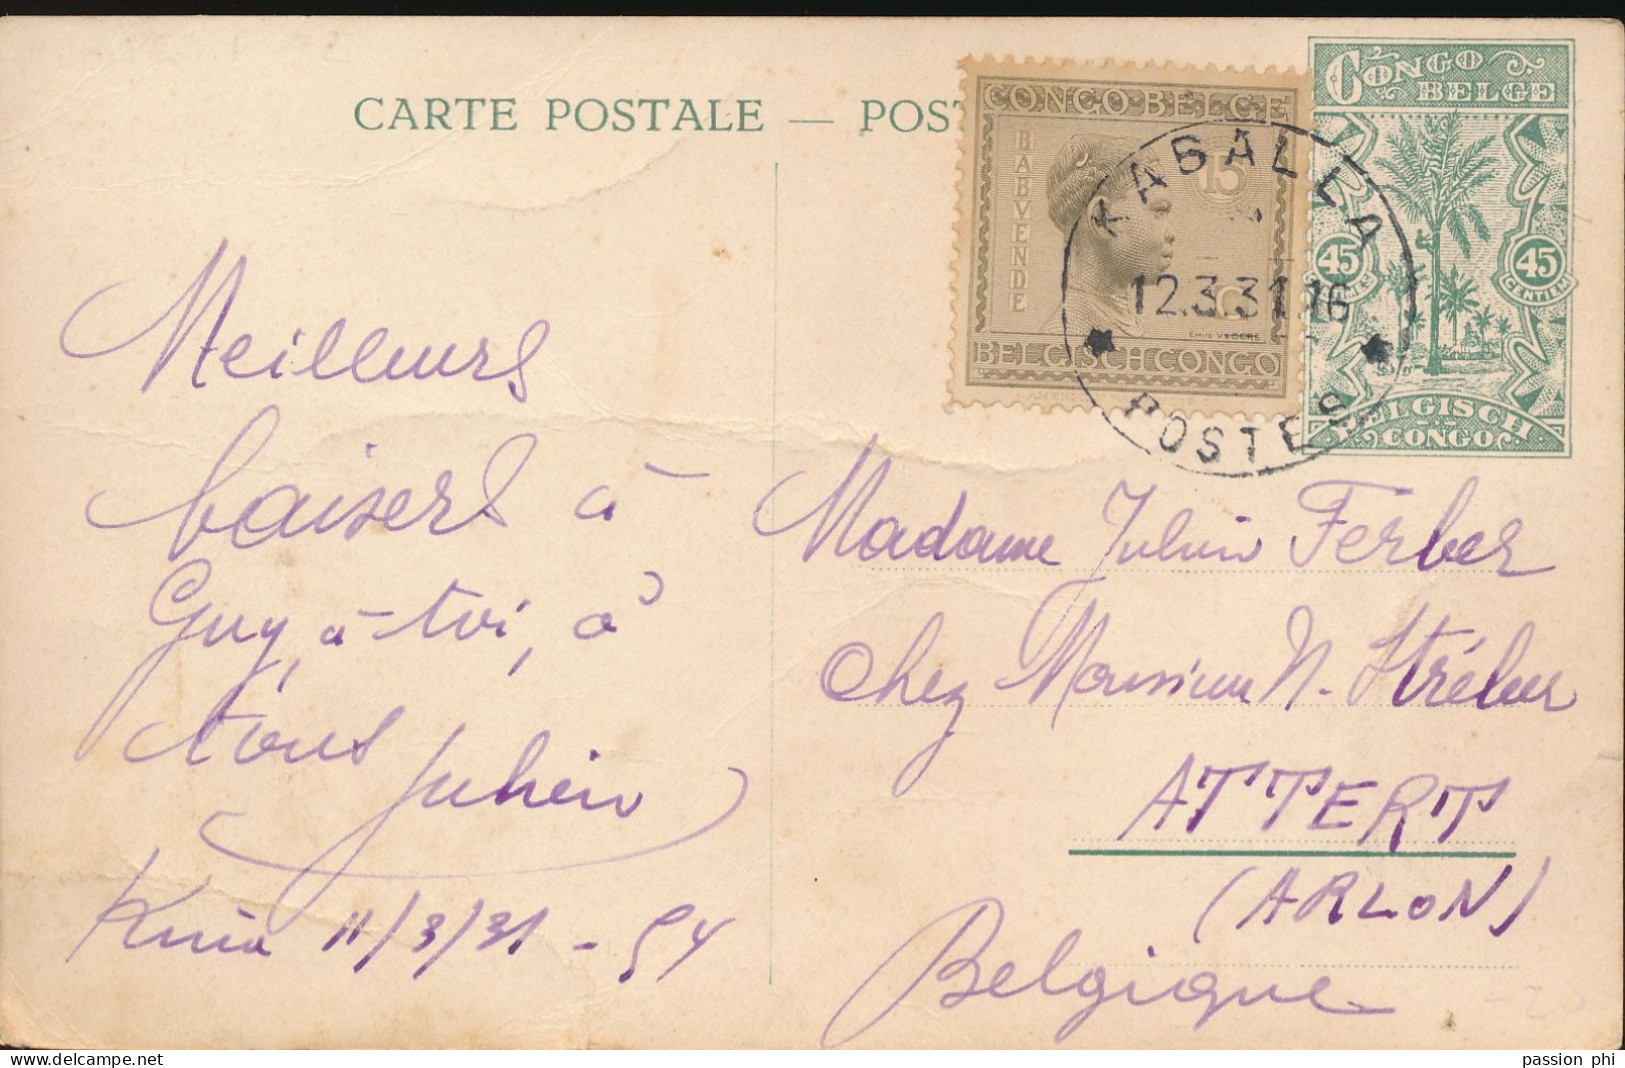 CARTE POSTALE — POS
CONGO BELGE
BABVENDE
15
BELGISCH CONGO
CONGO
BELGE
45
45
CENTIEM
BELGISCH
CONGO
KABALLA
12.3.31.16
POSTES
Meilleurs
baisers à
Guy, à toi, à
tous
Julien
11/3/31 - 54
Madame Julien Ferber
chez Monsieur N.
ATTERT
(ARLON)
Belgique
delcampe.net
passion phi